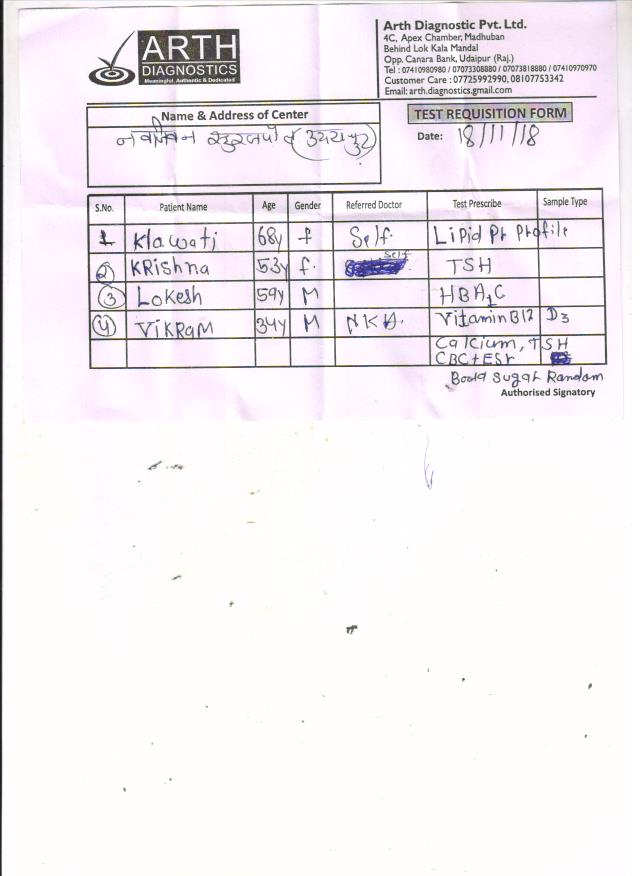 ARTH
DIAGNOSTICS
Meaningful, Authentic & Dedicated
Arth Diagnostic Pvt. Ltd.
4C, Apex Chamber, Madhuban
Behind Lok Kala Mandal
Opp. Canara Bank, Udaipur (Raj.)
Tel : 07410980980 / 07073308880 / 07073818880 / 07410970970
Customer Care : 07725992990, 08107753342
Email: arth.diagnostics.gmail.com
Name & Address of Center
TEST REQUISITION FORM
Date: 18/11/18
S.No. Patient Name Age Gender Referred Doctor Test Prescribe Sample Type
1 Klawatj 68y f Self. Lipid Pr Profile
2 KRishna 53y f. Self TSH
3 Lokesh 59y M HBA1C
4 VikRaM 34y M NKA. Vitamin B12 D3
Calcium, TSH
CBC+ESr
Boold Sugar Random
Authorised Signatory